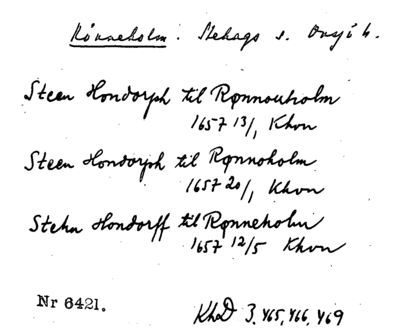 Rönneholm. Stehags s. Onsjö h.
Steen Hondorph til Rønnouholm
1657 13/1 Khvn
Steen Hondorph til Rønnoholm
1657 20/1, Khvn
Stehn Hondorff til Rønneholm
1657 12/5 Khvn
Nr 6421.
KhD 3, 465, 466, 469